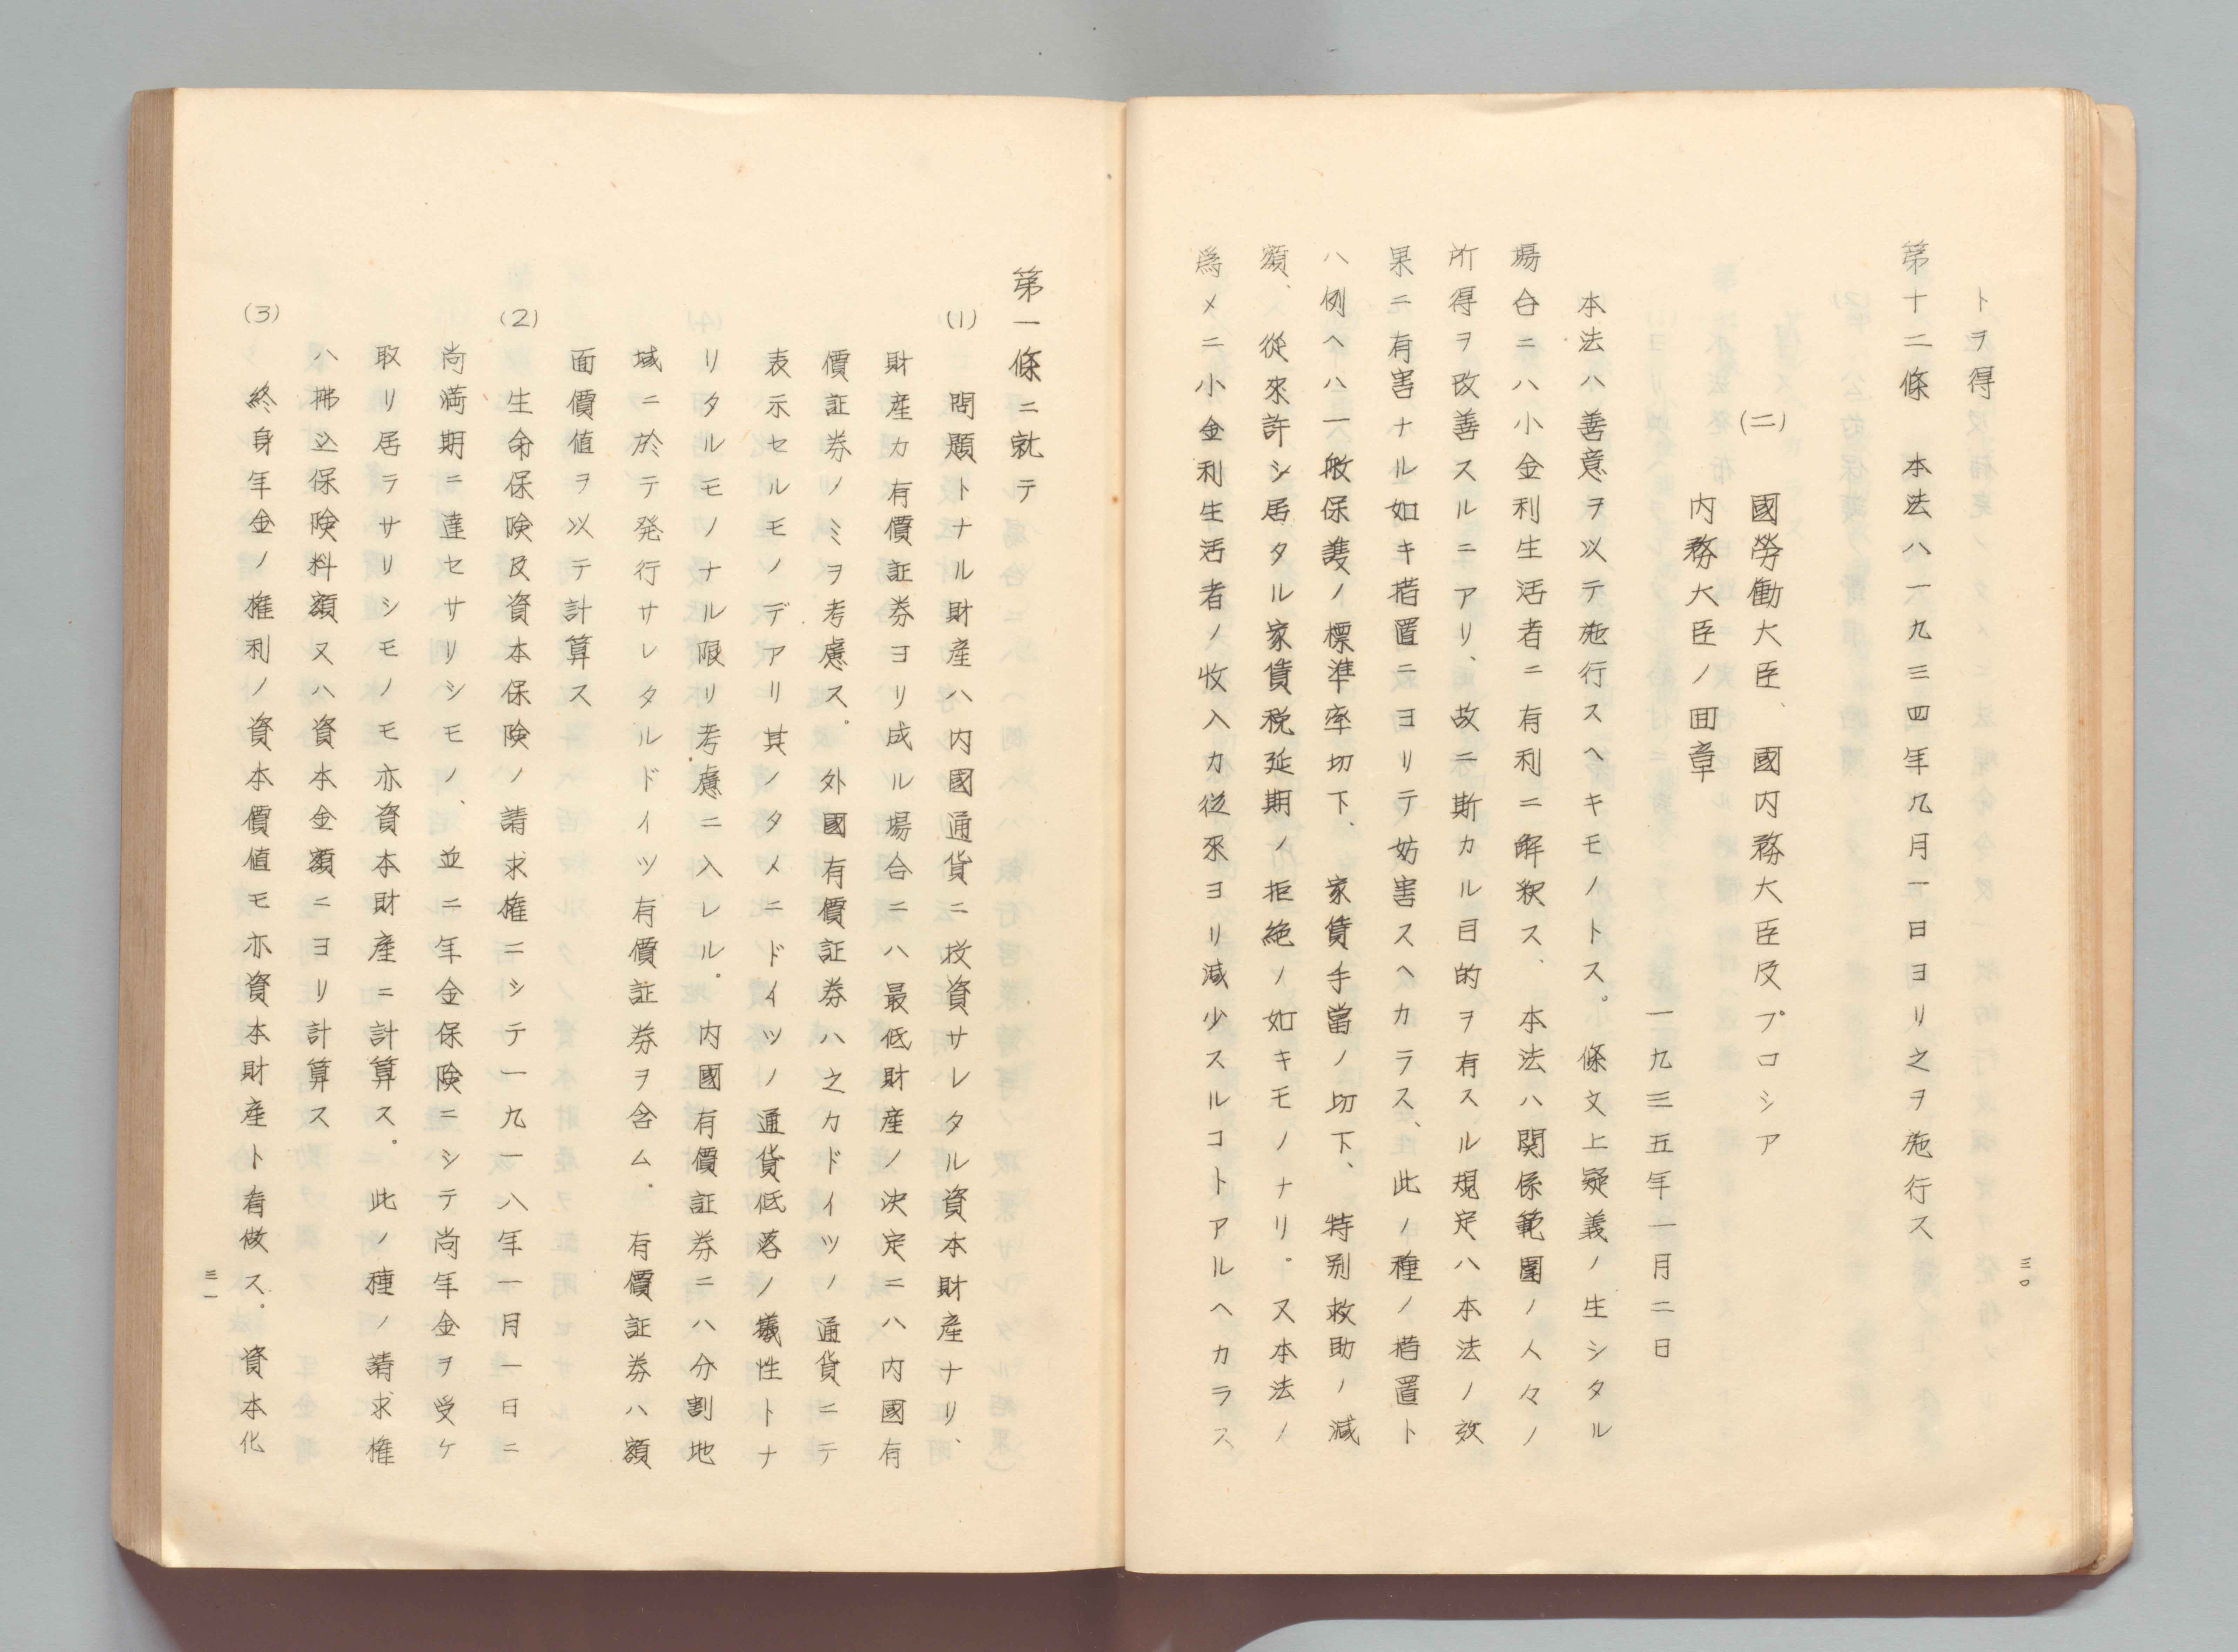 トヲ得
第十二條　本法ハ一九三四年九月一日ヨリ之ヲ施行ス
(二)　國勞働大臣、國内務大臣及プロシア
内務大臣ノ回章
一九三五年一月二日
本法ハ善意ヲ以テ施行スヘキモノトス。條文上疑義ノ生シタル
場合ニハ小金利生活者ニ有利ニ解釈ス、本法ハ関係範圍ノ人々ノ
所得ヲ改善スルニアリ、故ニ斯カル目的ヲ有スル規定ハ本法ノ效
果ニ有害ナル如キ措置ニヨリテ妨害スヘカラス、此ノ種ノ措置ト
ハ例ヘハ一般保護ノ標準率切下、家賃手當ノ切下、特别救助ノ減
額、從來許シ居タル家賃税延期ノ拒絶ノ如キモノナリ。又本法ノ
爲メニ小金利生活者ノ收入カ從來ヨリ減少スルコトアルヘカラス
三〇
第一條ニ就テ
(1)　問題トナル財産ハ内國通貨ニ投資サレタル資本財産ナリ、
財産カ有價証券ヨリ成ル場合ニハ最低財産ノ決定ニハ内國有
價証券ノミヲ考慮ス。外國有價証券ハ之カドイツノ通貨ニテ
表示セルモノデアリ其ノタメニドイツノ通貨低落ノ犠性トナ
リタルモノナル限リ考慮ニ入レル。内國有價証券ニハ分割地
域ニ於テ発行サレタルドイツ有價証券ヲ含ム。有價証券ハ額
面價値ヲ以テ計算ス
(2)　生命保険及資本保険ノ請求権ニシテ一九一八年一月一日ニ
尚満期ニ達セサリシモノ、並ニ年金保険ニシテ尚年金ヲ受ケ
取リ居ラサリシモノモ亦資本財産ニ計算ス。此ノ種ノ請求権
ハ拂込保険料額又ハ資本金額ニヨリ計算ス
(3)　終身年金ノ権利ノ資本價値モ亦資本財産ト看做ス。資本化
三一